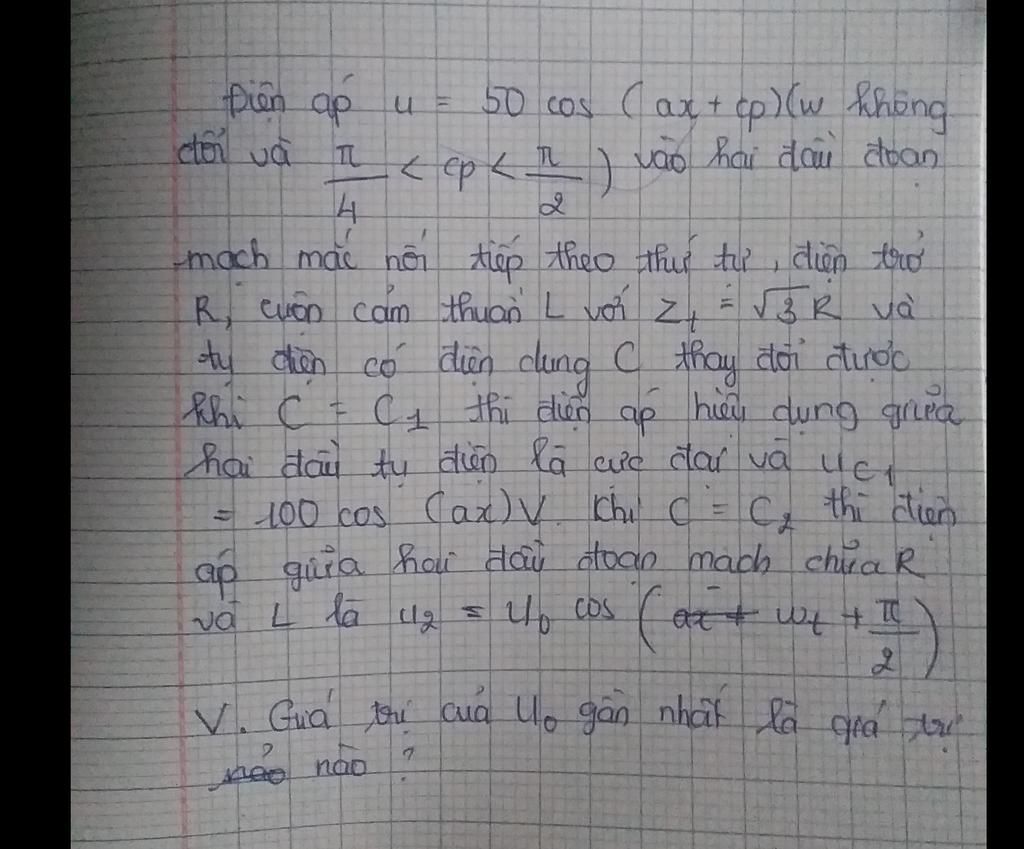 Điện áp u = 50 cos (ax + cp)(w không
đổi và π/4 < cp < π/2) vào hai đầu đoạn
mạch mắc nối tiếp theo thứ tự, điện trở
R, cuộn cảm thuần L với Zt = √3 R và
tụ điện có điện dung C thay đổi được
khi C = C1 thì điện áp hiệu dụng giữa
hai đầu tụ điện là cực đại và uC1
= 100 cos (ax)V. Khi C = C2 thì điện
áp giữa hai đầu đoạn mạch chứa R
và L là u2 = U0 cos (wt + π/2)
V. Giá trị của U0 gần nhất là giá trị
nào ?